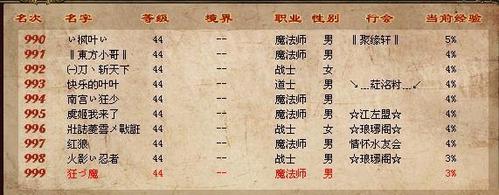 名次 名字 等级 境界 职业 性别 行会 当前经验
990 ぃ枫叶ぃ 44 -- 魔法师 男 ‖聚缘轩‖ 5%
991 ‖東方小哥‖ 44 -- 魔法师 男 4%
992 ㈠刀丶斩天下 44 -- 战士 女 4%
993 快乐的叶叶 44 -- 道士 男 4%
994 南宫ぃ狂少 44 -- 魔法师 男 4%
995 虞姬我来了 44 -- 魔法师 男 ☆江左盟☆ 4%
996 44 -- 战士 女 ☆琅琊阁☆ 4%
997 红狼 44 -- 魔法师 男 情怀水友会 4%
998 火影ぃ忍者 44 -- 魔法师 男 ☆琅琊阁☆ 4%
999 狂づ魔 44 -- 魔法师 男 4%